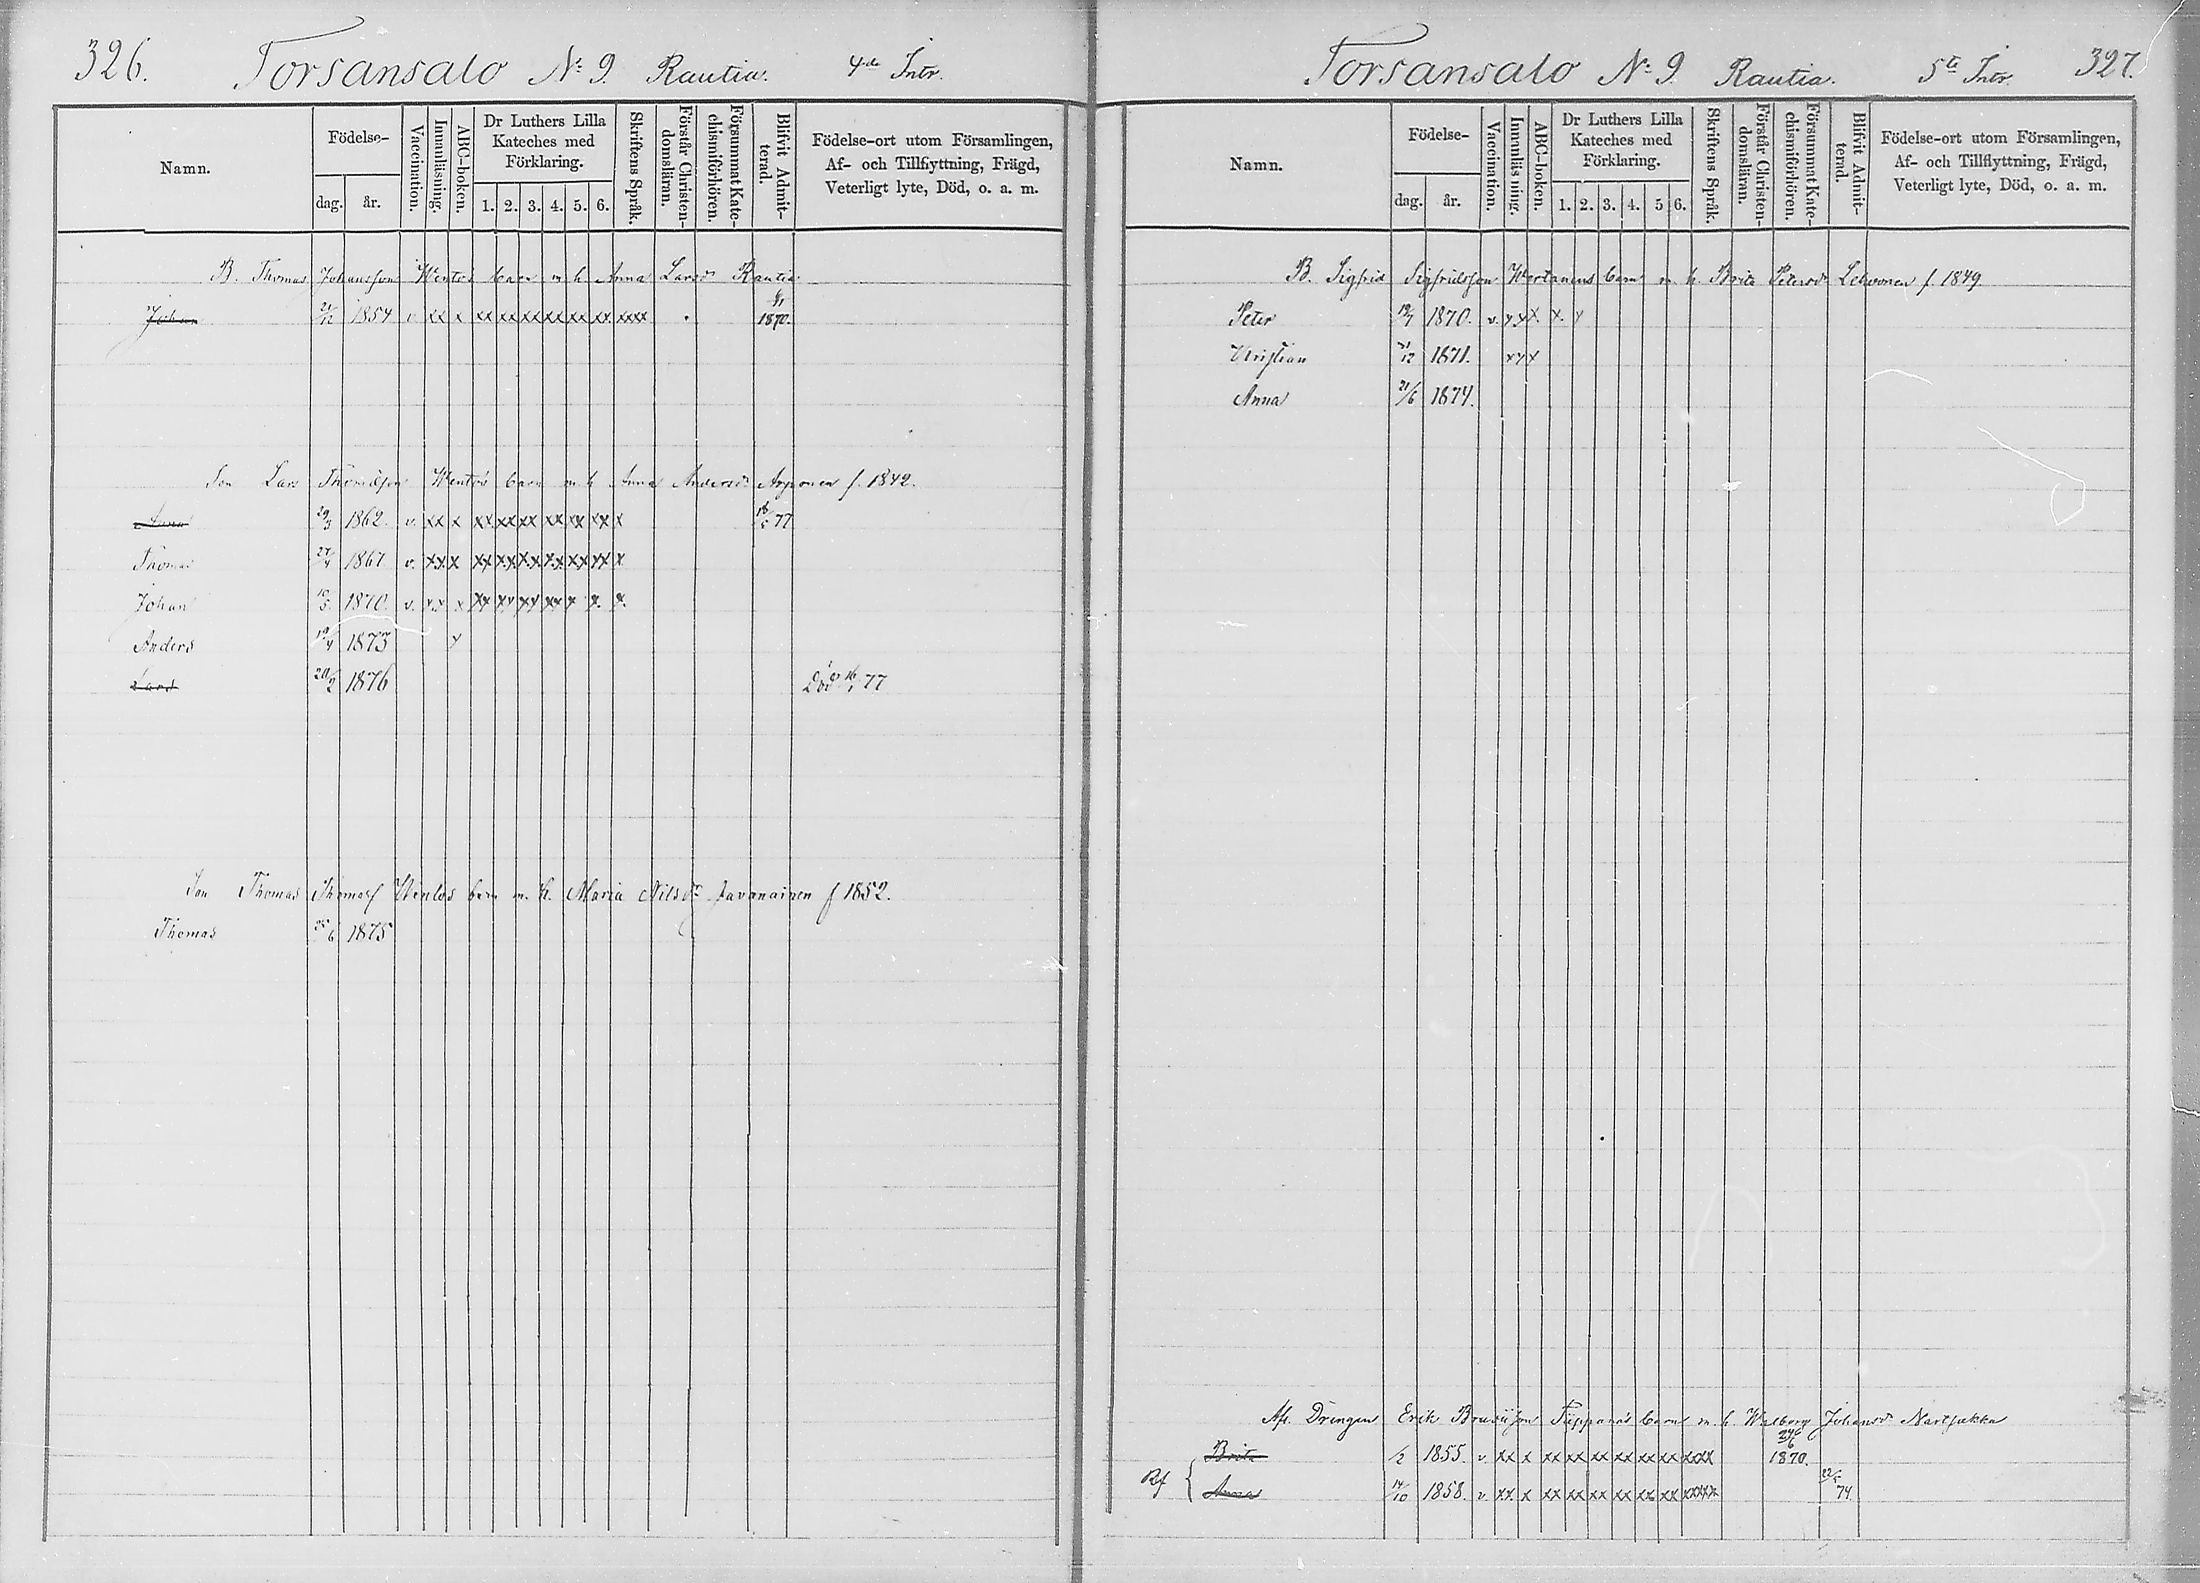 326. Torsansalo No 9. Rautia. 4de Intr.
Namn.
Födelse-
dag. år.
Vaccination.
Innanläsning.
ABC-boken.
Dr Luthers Lilla Kateches med Förklaring.
1. 2. 3. 4. 5. 6.
Skriftens Språk.
Förstår Christen-domsläran.
Försummat Kate-chismiförhören.
Blifvit Admit-terad.
Födelse-ort utom Församlingen,
Af- och Tillflyttning, Frägd,
Veterligt lyte, Död, o. a. m.
B. Thomas Johansson Wentos barn m h Anna Larsdr Rautia
Johan 21/12 1854 v xx x xx xx xx xx xx xx xxxx 1870.
Son Lars Thomasson Wentos barn m h Anna Andersdr f. 1842.
Anna 29/3 1862. v. xx x xx xx xx xx xx xx x 77
Thomas 27/4 1867 v. xx x xx xx xx xx xx xx x
Johan 10/5 1870. v. xx x xx xx xx xx x x. x.
Anders 19/4 1873 x
Lars 20/2 1876 Död 16/1 77
Son Thomas Thomass Wentos barn m. h. Maria Nilsdr Pavanainen f 1852.
Thomas 25/6 1875
Torsansalo No 9 Rautia. 5te Intr. 327.
Namn.
Födelse-
dag. år.
Vaccination.
Innanläsning.
ABC-boken.
Dr Luthers Lilla Kateches med Förklaring.
1. 2. 3. 4. 5 6.
Skriftens Språk.
Förstår Christen-domsläran.
Försummat Kate-chismiförhören.
Blifvit Admit-terad.
Födelse-ort utom Församlingen,
Af- och Tillflyttning, Frägd,
Veterligt lyte, Död, o. a. m.
B. Sigfrid Sigfridsson Wertanens barn m. h. Brita Petersdr Lehvonen f. 1849
Peter 19/7 1870. v. xx x. x. x
Christian 1871. xx x
Anna 21/6 1874.
Afl. Drängen Erik Tiippana's barn m. h. Walborg Johansdr
Brita /2 1855. v. xx x xx xx xx xx xx xx xxxx 24/6 1870.
Rf
Anna 14/10 1858. v. xx. x xx xx xx xx xx xx xxxxx 74.